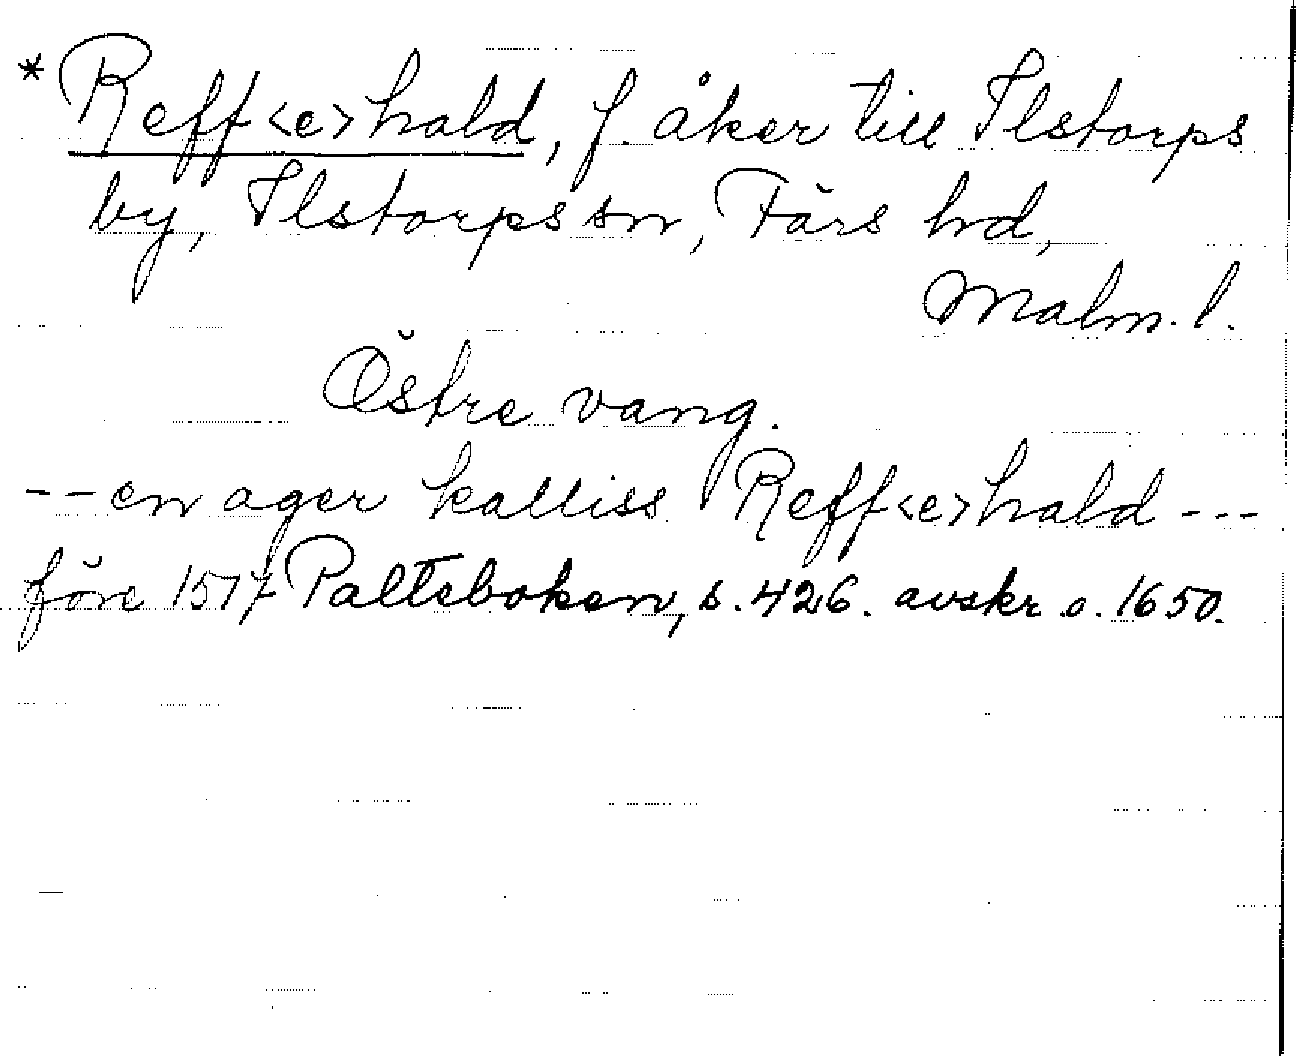 * Reff<e>hald, f. åker till Ilstorps
by, Ilstorps sn, Färs hd,
Malm. l.
Östre vang.
-- en ager kalliss Reff<e>hald ---
före 1517 Palteboken, s. 426. avskr. o. 1650.